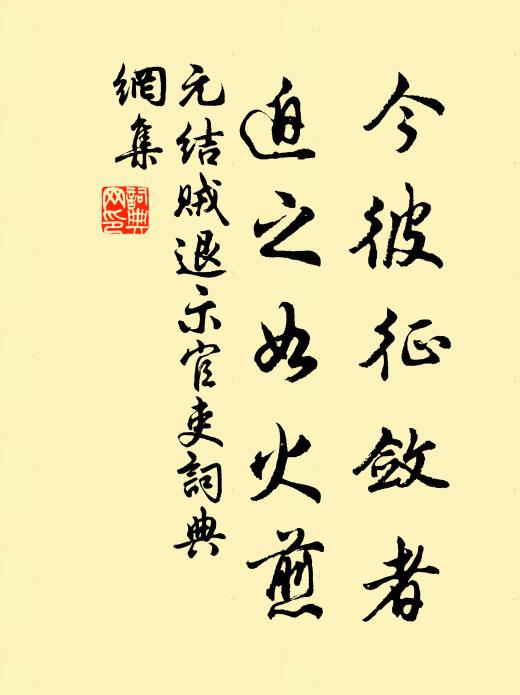 今彼征斂者
迫之如火煎
元结贼退示官吏詞典
網集
詞典
网印